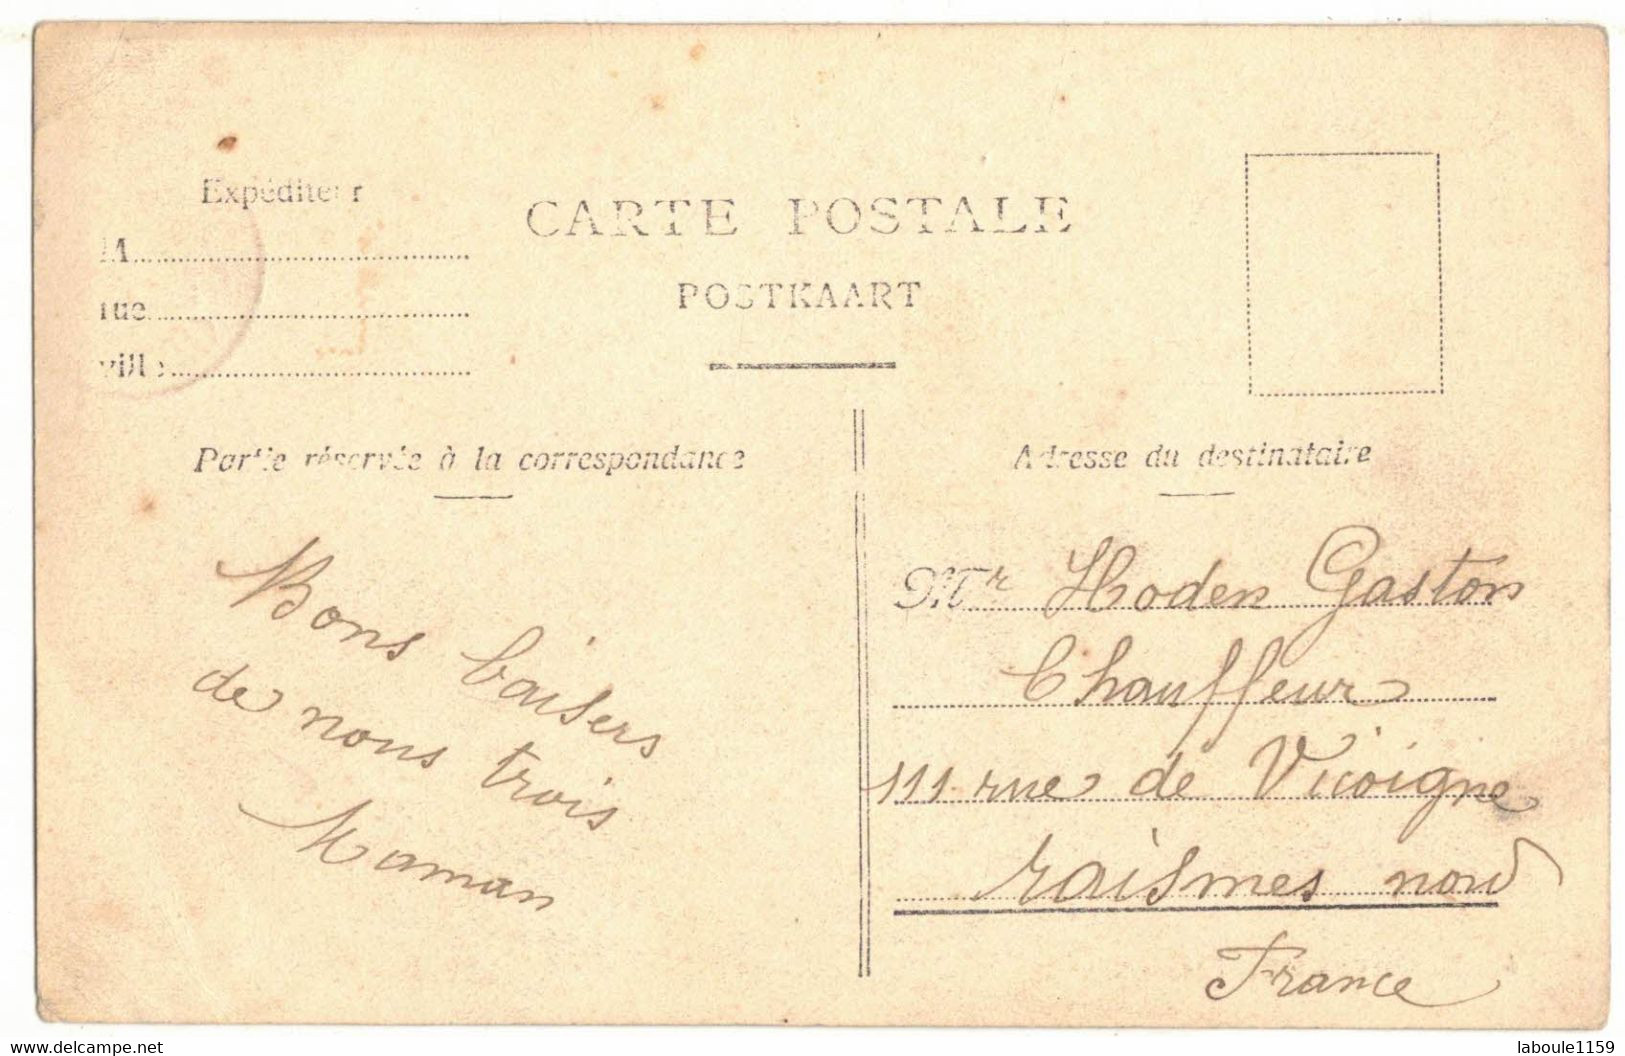 Expéditeur
M
rue
ville
CARTE POSTALE
POSTKAART
Partie réservée à la correspondance
Adresse du destinataire
Bons baisers
de nous trois
Maman
Mr Hoden Gaston
Chauffeur
111 rue de Vicoigne
raismes nord
France
www.delcampe.net
laboule1159